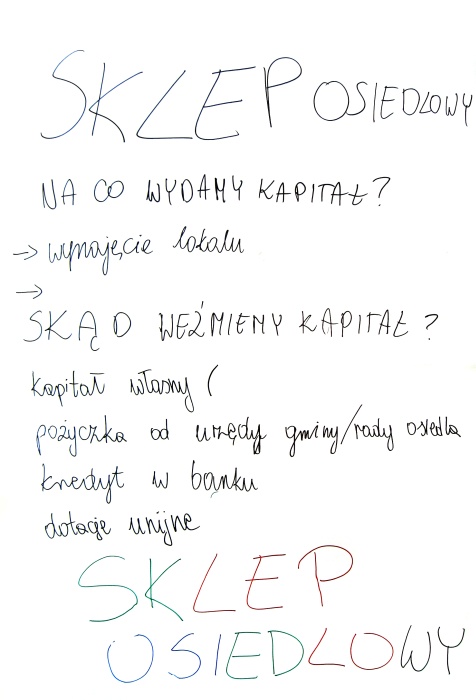 SKLEP OSIEDLOWY
NA CO WYDAMY KAPITAŁ?
→ wynajęcie lokalu
→
SKĄD WEŹMIEMY KAPITAŁ?
kapitał własny (
pożyczka od urzędy gminy/rady osiedla
kredyt w banku
dotacje unijne
SKLEP
OSIEDLOWY